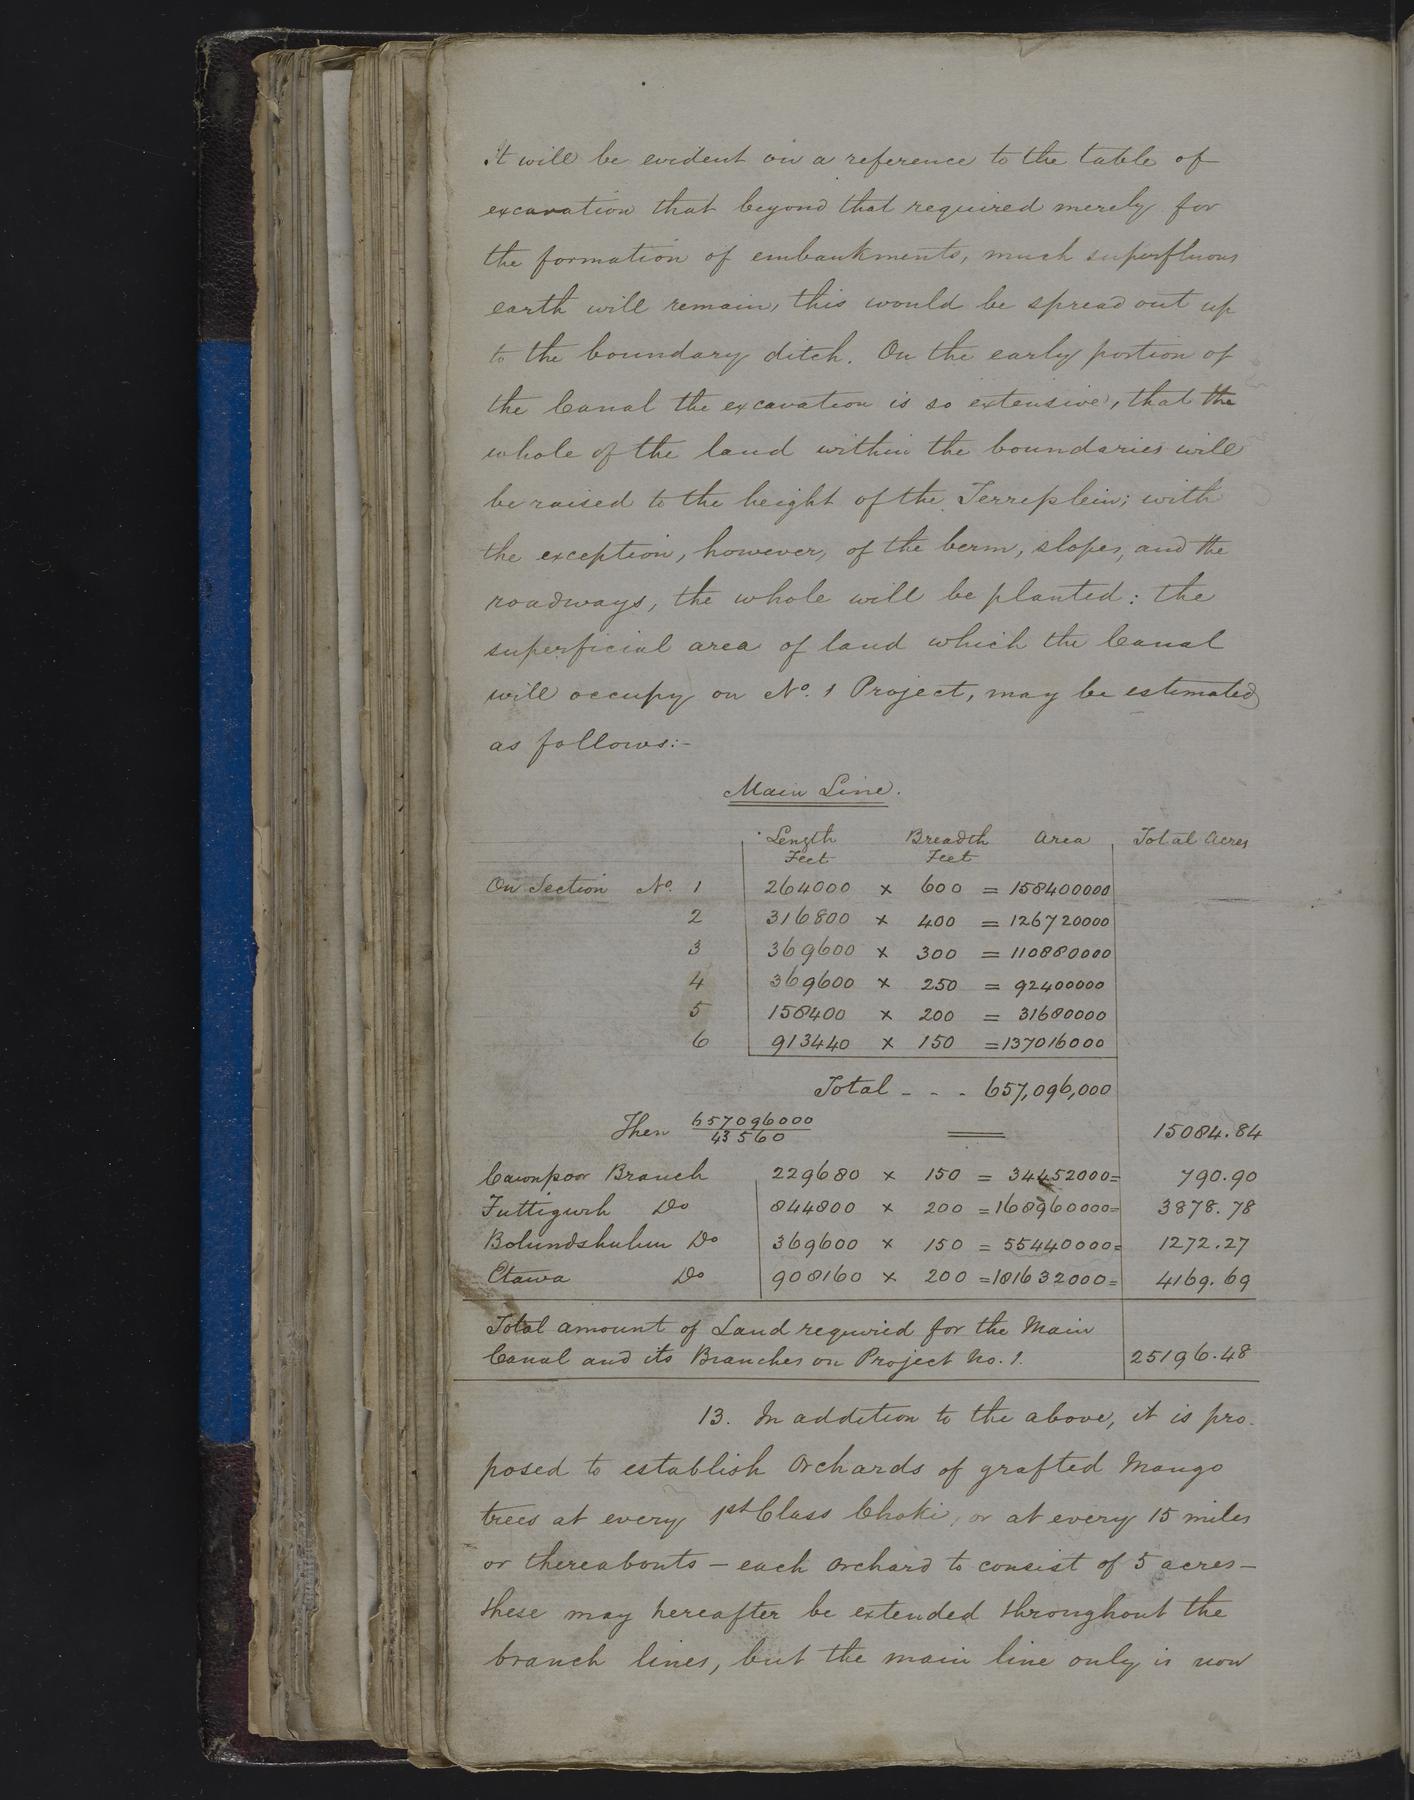 It will be evident on a reference to the table of
excavation that beyond that required merely for
the formation of embankments, much superfluous
earth will remain, this would be spread out up
to the boundary ditch. On the early portion of
the Canal the excavation is so extensive, that the
whole of the land within the boundaries will
be raised to the height of the Terreplein; with
the exception, however, of the berm, slopes, and the
roadways, the whole will be planted: the
superficial area of land which the Canal
will occupy on No. 1 Project, may be estimated
as follows:-
Main Line.
Length Feet Breadth Feet Area Total Acres
On Section No. 1 264000 × 600 = 158400000
2 316800 × 400 = 126720000
3 369600 × 300 = 110880000
4 369600 × 250 = 92400000
5 158400 × 200 = 31680000
6 913440 × 150 = 137016000
Total - - - 657,096,000
Then 657096000/43560 = 15084.84
Cawnpoor Branch 229680 × 150 = 34452000 = 790.90
Futtigurh Do 844800 × 200 = 168960000 = 3878.78
Bolundshuhur Do 369600 × 150 = 55440000 = 1272.27
Etawa Do 908160 × 200 = 181632000 = 4169.69
Total amount of Land required for the Main
Canal and its Branches on Project No. 1. 25196.48
13. In addition to the above, it is pro-
posed to establish Orchards of grafted Mango
trees at every 1st Class Choki, or at every 15 miles
or thereabouts – each orchard to consist of 5 acres –
these may hereafter be extended throughout the
branch lines, but the main line only is now